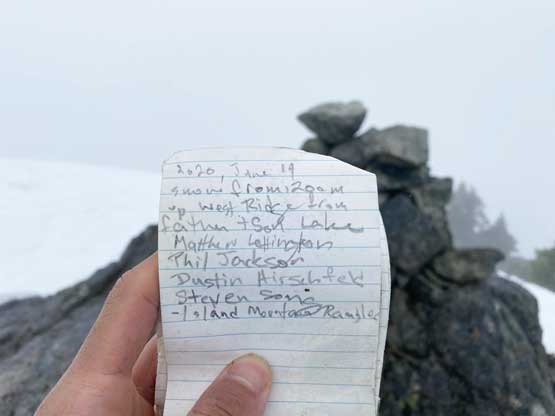 2020, June 19
snow from 1200m
up West Ridge from
father + Son Lake
Matthew Lettington
Phil Jackson
Dustin Hirschfeld
Steven Song
- Island Mountain Rambles